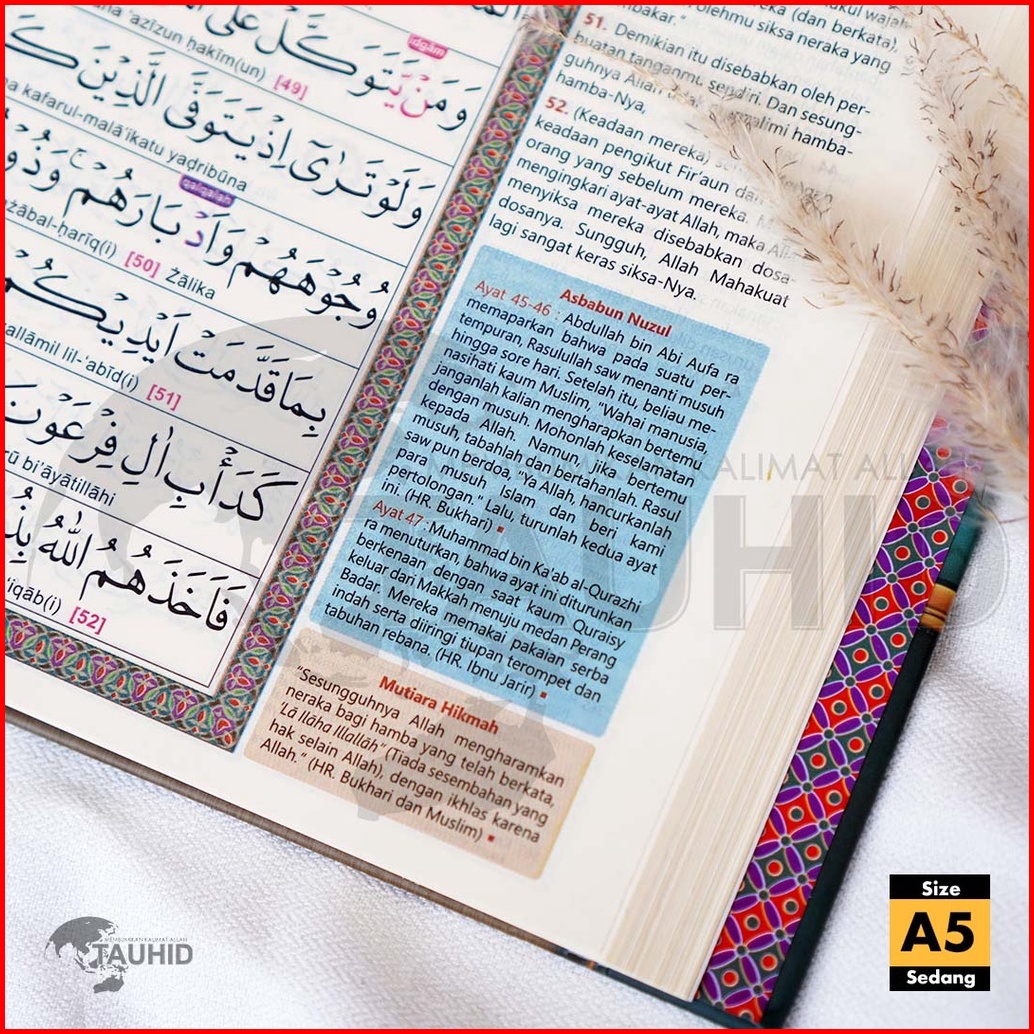 ‘azīzun ḥakīm(un) [49]
idgām
وَمَنْ يَّتَوَكَّلْ عَلَى
وَلَوْ تَرٰٓى اِذْ يَتَوَفَّى الَّذِيْنَ
kafarul-malā'ikatu yaḍribūna
qalqalah
وُجُوْهَهُمْ وَاَدْبَارَهُمْۚ وَذُوْ
‘ażābal-ḥarīq(i) [50] Żālika
بِمَا قَدَّمَتْ اَيْدِيْكُمْ
allāmil lil-‘abīd(i) [51]
كَدَأْبِ اٰلِ فِرْعَوْنَ
bi'āyātillāhi
فَاَخَذَهُمُ اللّٰهُ
‘iqāb(i) [52]
wajah
mereka (dan berkata),
olehmu siksa neraka yang
bakar."
51. Demikian itu disebabkan oleh per-
buatan tanganmu sendiri. Dan sesung-
guhnya Allah tidak menzalimi hamba-
hamba-Nya,
52. (Keadaan mereka)
keadaan pengikut Fir'aun dan
orang yang sebelum mereka.
mengingkari ayat-ayat Allah, maka
menyiksa mereka disebabkan dosa-
dosanya. Sungguh, Allah Mahakuat
lagi sangat keras siksa-Nya.
Asbabun Nuzul
Ayat 45-46 : Abdullah bin Abi Aufa ra
memaparkan bahwa pada suatu per-
tempuran, Rasulullah saw menanti musuh
hingga sore hari. Setelah itu, beliau me-
nasihati kaum Muslim, "Wahai manusia,
janganlah kalian mengharapkan bertemu
dengan musuh. Mohonlah keselamatan
kepada Allah. Namun, jika bertemu
musuh, tabahlah dan bertahanlah. Rasul
saw pun berdoa, "Ya Allah, hancurkanlah
para musuh Islam dan beri kami
pertolongan." Lalu, turunlah kedua ayat
ini. (HR. Bukhari)
Ayat 47 : Muhammad bin Ka'ab al-Qurazhi
ra menuturkan, bahwa ayat ini diturunkan
berkenaan dengan saat kaum Quraisy
keluar dari Makkah menuju medan Perang
Badar. Mereka memakai pakaian serba
indah serta diiringi tiupan terompet dan
tabuhan rebana. (HR. Ibnu Jarir)
Mutiara Hikmah
"Sesungguhnya Allah mengharamkan
neraka bagi hamba yang telah berkata,
'Lā Ilāha Illallāh" (Tiada sesembahan yang
hak selain Allah), dengan ikhlas karena
Allah." (HR. Bukhari dan Muslim)
KALIMAT ALLAH
TAUHID
MEMBUMIKAN KALIMAT ALLAH
TAUHID
Size
A5
Sedang